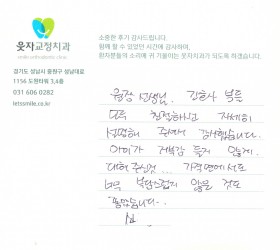 웃자교정치과
smile orthodontic clinic
경기도 성남시 중원구 성남대로
1156 도원타워 3,4층
031 606 0282
letssmile.co.kr
소중한 후기 감사드립니다.
함께 할 수 있었던 시간에 감사하며,
환자분들의 소리에 귀 기울이는 웃자치과가 되도록 하겠습니다.
원장 선생님, 간호사 분들
모두 친절하고 자세히
설명해 주셔서 감사했습니다.
아이가 거부감 들지 않게
대해 주심도... 가격면에서도
너무 부담스럽지 않은 점도
좋았습니다..